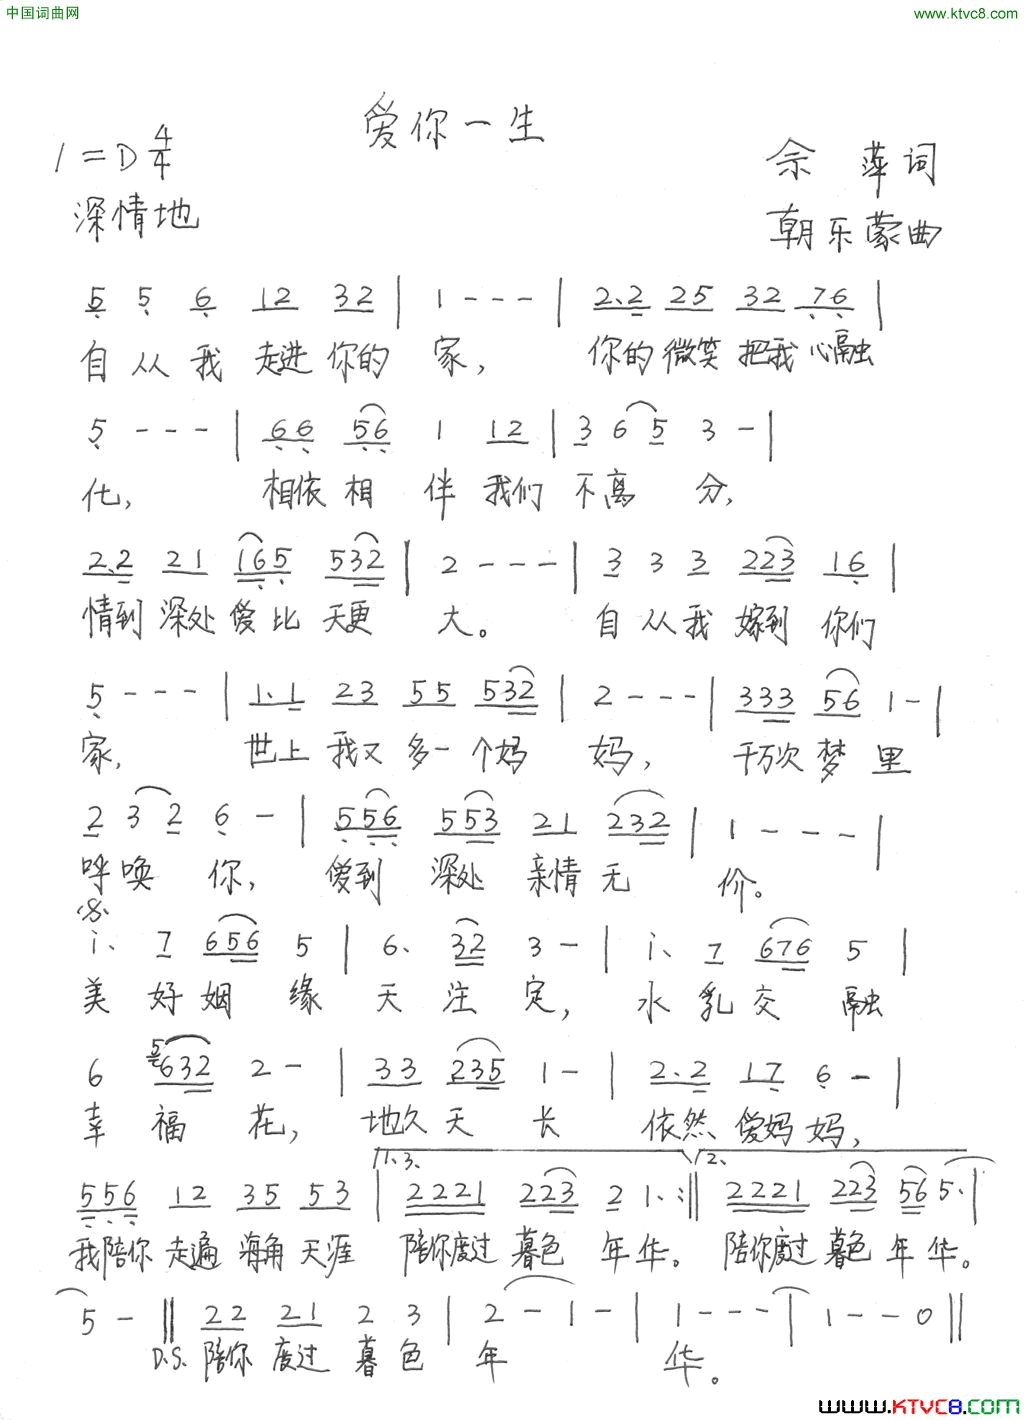 中国词曲网
www.ktvc8.com
爱你一生
1=D 4/4
佘 萍词
深情地
朝乐蒙曲
5 5 6 12 32 | 1 - - - | 2.2 25 32 76 |
自从我 走进你的 家， 你的微笑把我心融
5 - - - | 66 56 1 12 | 3 6 5 3 - |
化， 相依相 伴 我们 不离 分，
2.2 21 165 532 | 2 - - - | 3 3 3 223 16 |
情到 深处 爱比 天更 大。 自从我 嫁到 你们
5 - - - | 1.1 23 55 532 | 2 - - - | 333 56 1 - |
家， 世上 我又 多一 个妈 妈， 千万次 梦 里
2 3 2 6 - | 556 553 21 232 | 1 - - - |
呼唤 你， 爱到 深处 亲情 无 价。
i. 7 656 5 | 6. 32 3 - | i. 7 676 5 |
美 好 姻 缘 天 注 定， 水 乳 交 融
6 5 632 2 - | 33 235 1 - | 2.2 17 6 - |
幸 福 花， 地久 天 长 依然 爱妈 妈，
1、3. 2.
556 12 35 53 | 2221 223 2 1. :|| 2221 223 56 5. |
我陪你 走遍 海角 天涯 陪你度过 暮色 年 华。 陪你度过 暮色 年 华。
5 - || 22 21 2 3 | 2 - 1 - | 1 - - - | 1 - - 0 ||
D.S. 陪你 度过 暮 色 年 华。
www.KTVC8.com